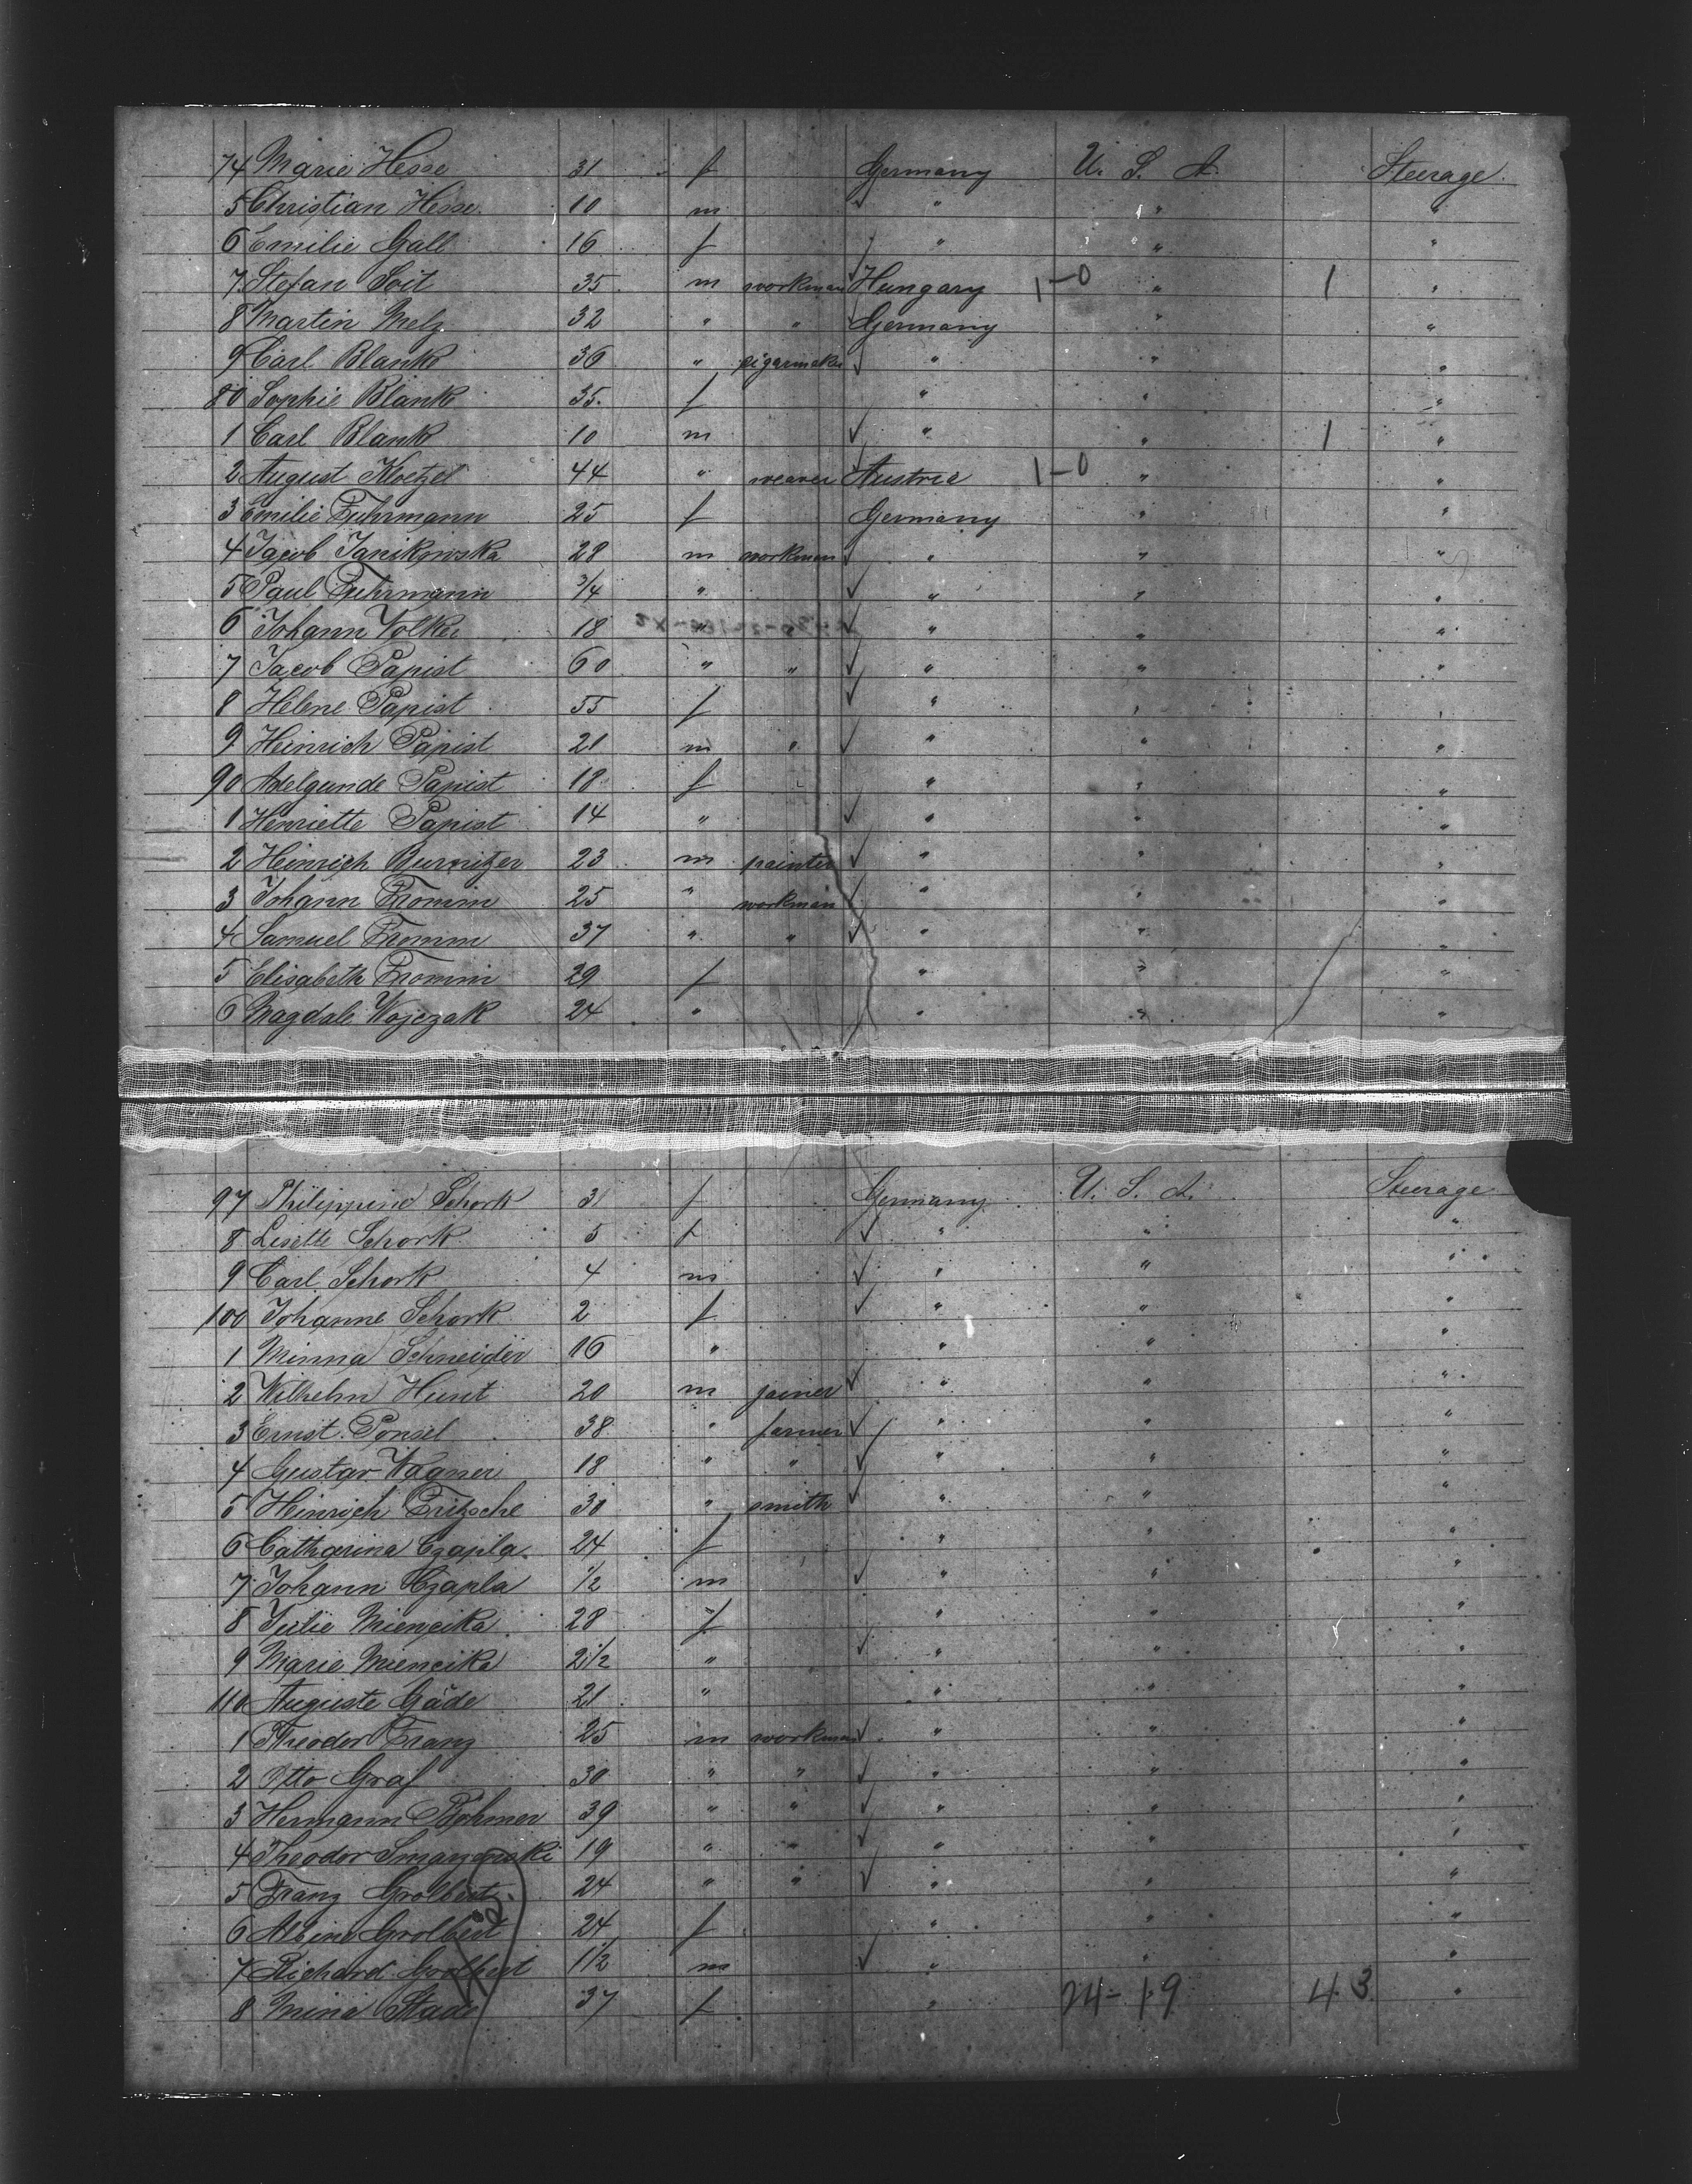 74 Marie Hesse 31 f Germany U. S. A. Steerage
5 Christian Hesse 10 m " " "
6 Emilie Gall 16 f " " "
7 Stefan Soit 35 m workman Hungary 1-0 " 1 "
8 Martin Melz 32 " " Germany " "
9 Carl Blank 36 " cigarmaker " " "
80 Sophie Blank 35 f " " "
1 Carl Blank 10 m " " 1 "
2 August Kloetzel 44 " weaver Austria 1-0 " "
3 Emilie Fuhrmann 25 f Germany " "
4 Jacob Janikowska 28 m workman " " "
5 Paul Fuhrmann 3/4 " " " "
6 Johann Volker 18 " " " "
7 Jacob Papist 60 " " " " "
8 Helene Papist 55 f " " "
9 Heinrich Papist 21 m " " " "
90 Adelgunde Papist 18 f " " "
1 Henriette Papist 14 " " " "
2 Heinrich Burnitzer 23 m painter " " "
3 Johann Fromm 25 " workman " " "
4 Samuel Fromm 37 " " " " "
5 Elisabeth Fromm 29 f " " "
6 Magdale Wojczak 24 " " " "
97 Philippine Schork 31 f Germany U. S. A. Steerage
8 Lisette Schork 5 f " " "
9 Carl Schork 4 m " " "
100 Johanne Schork 2 f " " "
1 Minna Schneider 16 " " " "
2 Wilhelm Hunt 20 m joiner " " "
3 Ernst Ponsel 38 " farmer " " "
4 Gustav Wagner 18 " " " " "
5 Heinrich Fritzsche 30 " smith " " "
6 Catharina Czapla 24 f " " "
7 Johann Czapla 1/2 m " " "
8 Julie Miencika 28 f " " "
9 Marie Miencika 2 1/2 " " " "
110 Auguste Gäde 21 " " " "
1 Theodor Franz 25 m workman " " "
2 Otto Graf 30 " " " " "
3 Hermann Böhmer 39 " " " " "
4 Theodor 19 " " " " "
5 Franz Grolbert 24 " " " " "
6 Albine Grolbert 24 f " " "
7 Richard Grolbert 1 1/2 m " " "
8 Mina Stade 37 f " 24-19 43 "